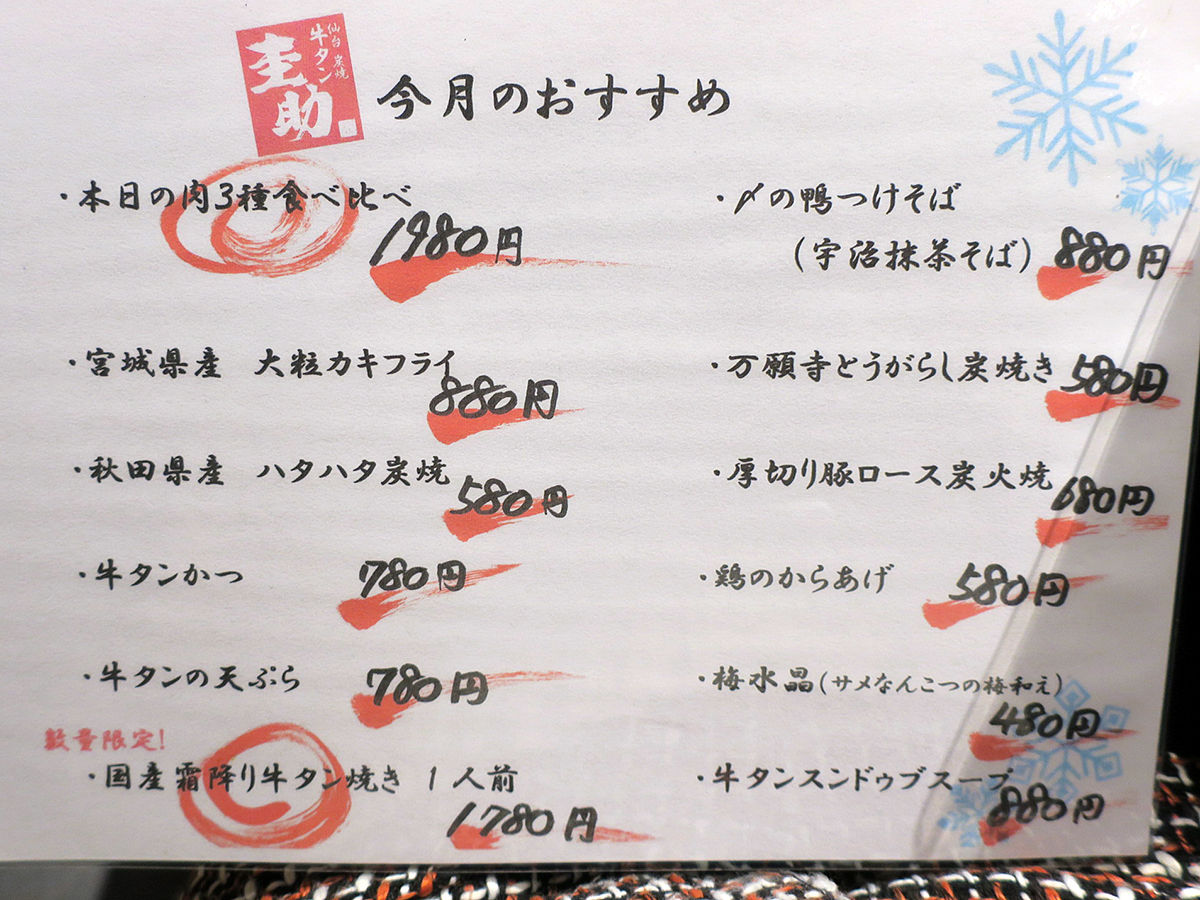 仙台 炭焼
牛タン
圭助
今月のおすすめ
・本日の肉3種食べ比べ
1980円
・宮城県産 大粒カキフライ
880円
・秋田県産 ハタハタ炭焼
580円
・牛タンかつ 780円
・牛タンの天ぷら 780円
数量限定!
・国産霜降り牛タン焼き 1人前
1780円
・〆の鴨つけそば
(宇治抹茶そば) 880円
・万願寺とうがらし炭焼き 580円
・厚切り豚ロース炭火焼 680円
・鶏のからあげ 580円
・梅水晶(サメなんこつの梅和え)
480円
・牛タンスンドゥブスープ
880円